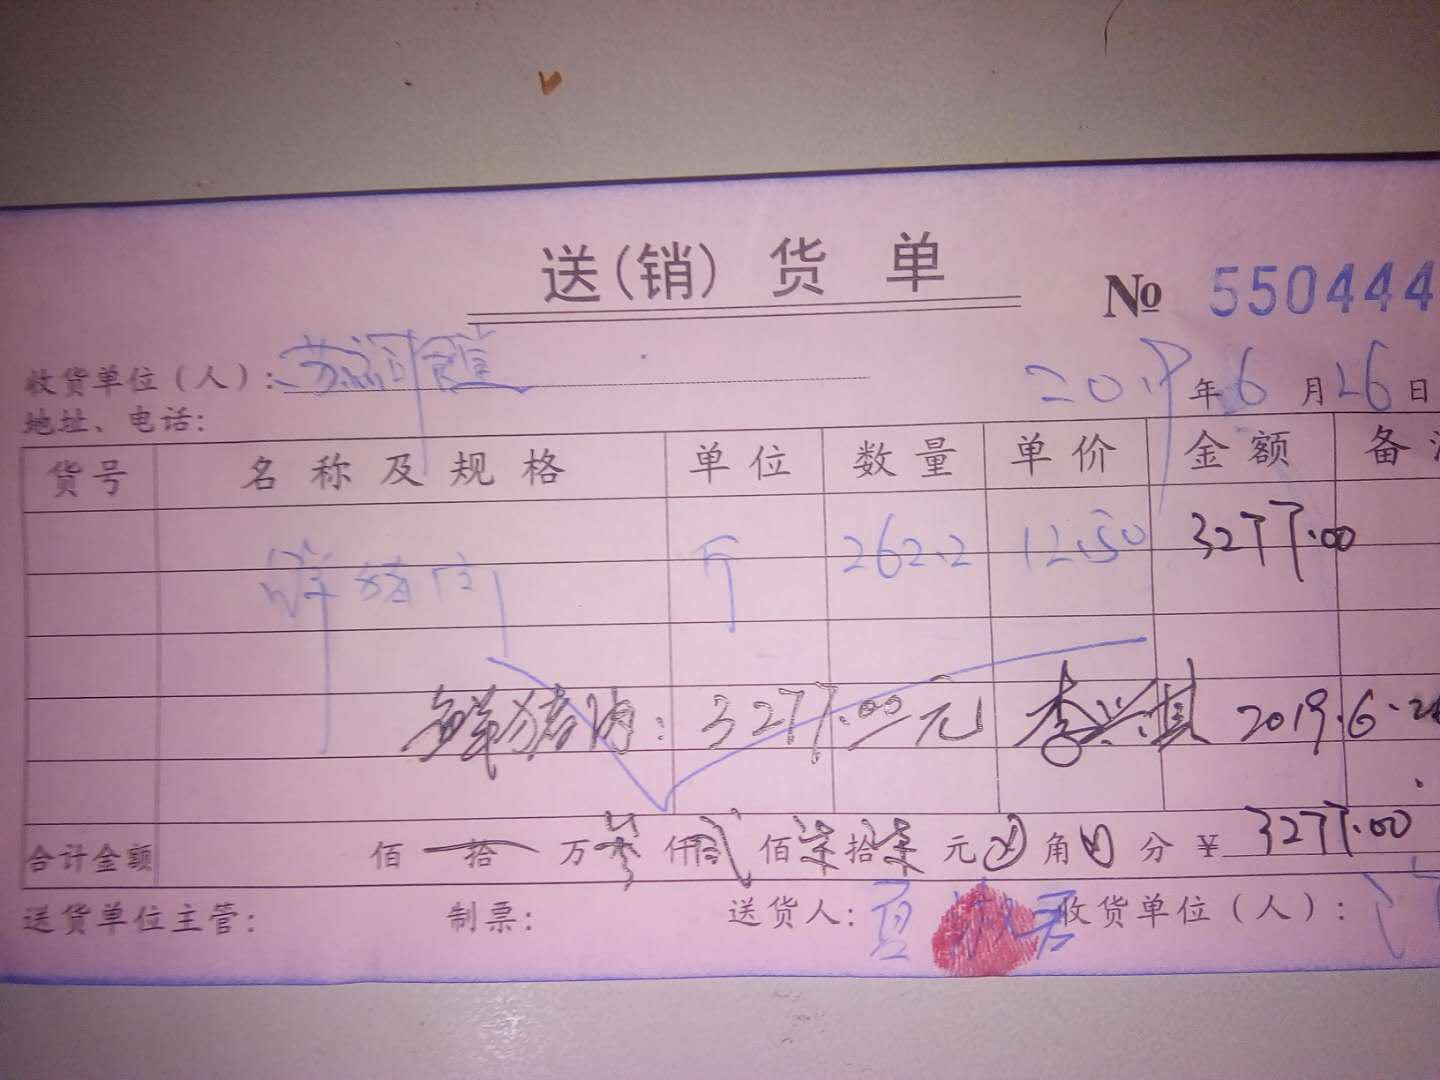 送(销)货单
№ 550444
收货单位（人）：
2019年6月26日
地址、电话：
货号 名称及规格 单位 数量 单价 金额 备
鲜猪肉 斤 262.2 12.50 3277.00
鲜猪肉：3277.00元 李兴淇 2019.6.26
合计金额 佰 拾 万叁仟贰佰柒拾柒元 角 分 ¥3277.00
送货单位主管： 制票： 送货人：夏 收货单位（人）：